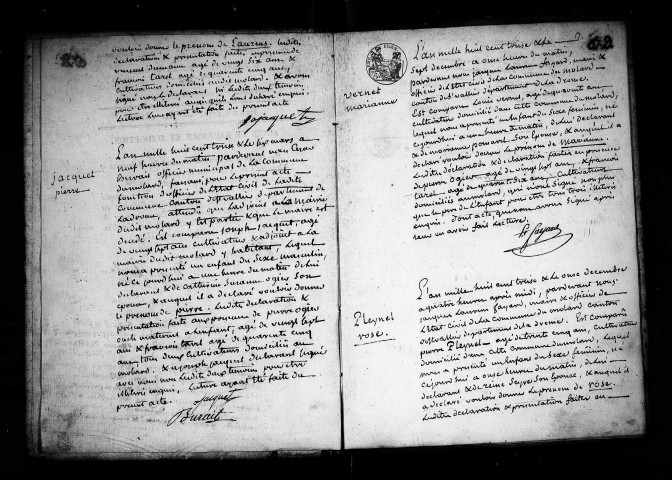 vouloir donner le prenom de Laurens. Lesdits
declaration & presentation faites en presence de
vincent dumas agé de vingt six ans &
francois tarel agé de quarente cinq ans,
cultivateurs domiciliés audit molard. & avons
signé nous
pour être illitéré ainsi qu'ils l'ont declaré enquis
Lecture Leur ayant été faite du present acte
jacquet
jacquet
pierre
L'an mille huit cent treise & le six mars a
neuf heures du matin pardevant nous Cesar
Burais officier municipal de la commune
du molard, faisant, pour le present acte
fonction d'officier de l'état civil de ladite
Commune Canton destvallier département de
La drome, attendu que l'adjoint a la mairie
dudit molard y est partie & que le maire est
decedé. Est comparu joseph jacquet, agé
de vingt sept ans cultivateur & adjoint a la
mairie dudit molard y habitant, Lequel
nous a presenté un enfant du sexe masculin,
né ce jourd'hui a une heure du matin de lui
declarant & de Catherine Suzanne ogier son
epouse, & auquel il a declaré vouloir donner
le prenom de pierre. Lesdites declaration &
presentation faites en presence de pierre ogier
oncle maternel a l'enfant, agé de vingt sept
ans & francois tarel agé de quarente cinq
ans, tous deux Cultivateurs domiciliés au
molard. & a joseph jacquet declarant signé
avec nous non Lesdits deux temoins pour être
illitéré enquis, Lecture ayant été faite du
present acte.
jacquet
Burais
vernet
marianne
L'an mille huit cent treise & le
Sept decembre a onze heures du matin,
pardevant nous jacques Laurens Fayard, maire &
officier de l'état civil de la commune du molard
canton destvallier département de la drome.
Est comparu Louis vernet, agé de quarente ans,
cultivateur domicilié dans cette commune du molard,
lequel nous a presenté un enfant du sexe feminin, né
cejourd'hui a une heure du matin, de lui declarant
& de marianne ponsard son epouse, & auquel il a
declaré vouloir donner le prenom de marianne.
Lesdites declaration & presentation faites en presence
de pierre ogier agé de vingt sept ans, & francois
tarel agé de quarente cinq ans Cultivateurs
domiciliés au molard, qui n'ont signé non plus
que le pere de l'enfant pour être tous trois illitéré
enquis. dont acte, que nous avons signé après
leur en avoir fait Lecture.
Fayard
Pleynet
rose.
L'an mille huit cent treise & le onze decembre
a quatre heures après midi, pardevant nous
jacques Laurens Fayard, maire & officier de
l'état civil de la commune du molard canton
destvallier département de la drome. Est comparu
pierre Pleynet agé de trente cinq ans, cultivateur
domicilié dans cette commune du molard, Lequel
nous a presenté un enfant du sexe feminin, né
cejourd'hui a onze heures du matin, de lui
declarant & de son epouse, & auquel il
a declaré vouloir donner le prenom de rose.
Lesdites declaration & presentation faites en